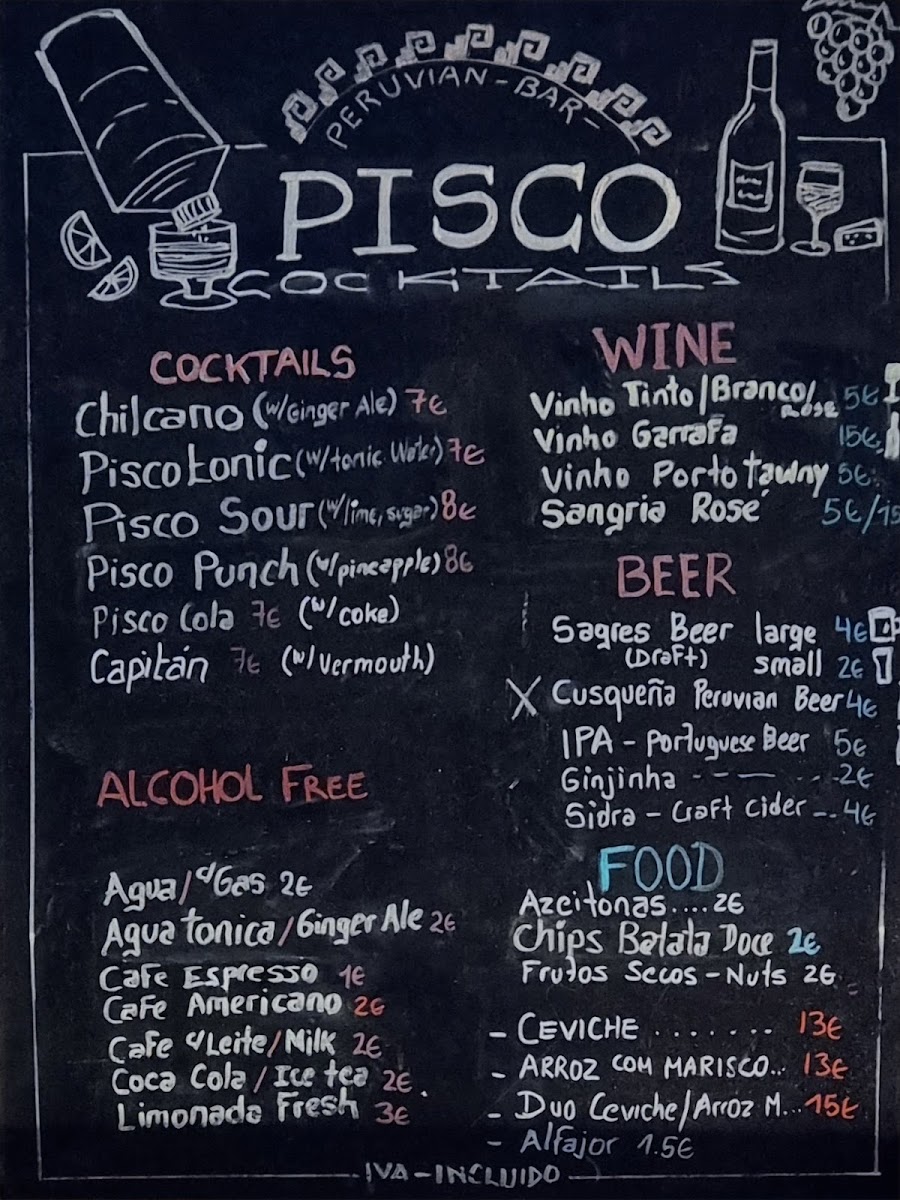 PERUVIAN-BAR-
PISCO
COCKTAILS
COCKTAILS
Chilcano (w/Ginger Ale) 7€
Pisco tonic (w/tonic Water) 7€
Pisco Sour (w/lime, sugar) 8€
Pisco Punch (w/pineapple) 8€
Pisco Cola 7€ (w/coke)
Capitán 7€ (w/vermouth)
ALCOHOL FREE
Agua/c/Gas 2€
Agua tonica/Ginger Ale 2€
Cafe Espresso 1€
Cafe Americano 2€
Cafe c/Leite/Milk 2€
Coca Cola / Ice tea 2€
Limonada Fresh 3€
WINE
Vinho Tinto/Branco/Rosé 5€
Vinho Garrafa 15€
Vinho Porto tawny 5€
Sangria Rosé 5€/15
BEER
Sagres Beer large 4€
(Draft) small 2€
X Cusqueña Peruvian Beer 4€
IPA - Portuguese Beer 5€
Ginjinha - - - - - - 2€
Sidra - Craft Cider -.. 4€
FOOD
Azeitonas.... 2€
Chips Batata Doce 2€
Frutos Secos - Nuts 2€
- CEVICHE ....... 13€
- ARROZ COM MARISCO... 13€
- Duo Ceviche/Arroz M... 15€
- Alfajor 1.5€
- IVA - INCLUIDO